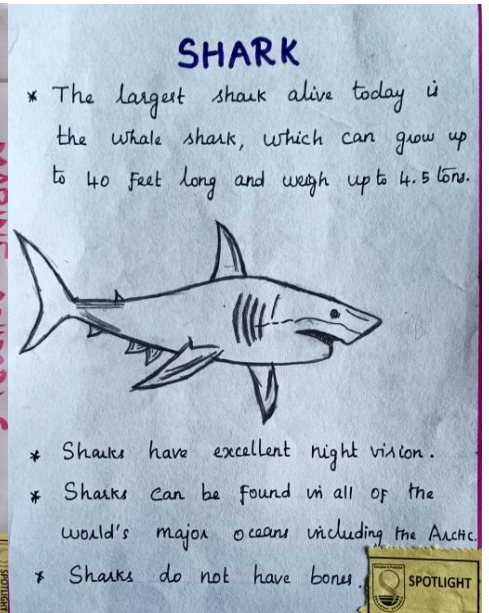 SHARK
* The largest shark alive today is
the whale shark, which can grow up
to 40 feet long and weigh up to 4.5 tons.
* Sharks have excellent night vision.
* Sharks can be found in all of the
world's major oceans including the Arctic.
* Sharks do not have bones.
SPOTLIGHT
SPOTLIGHT